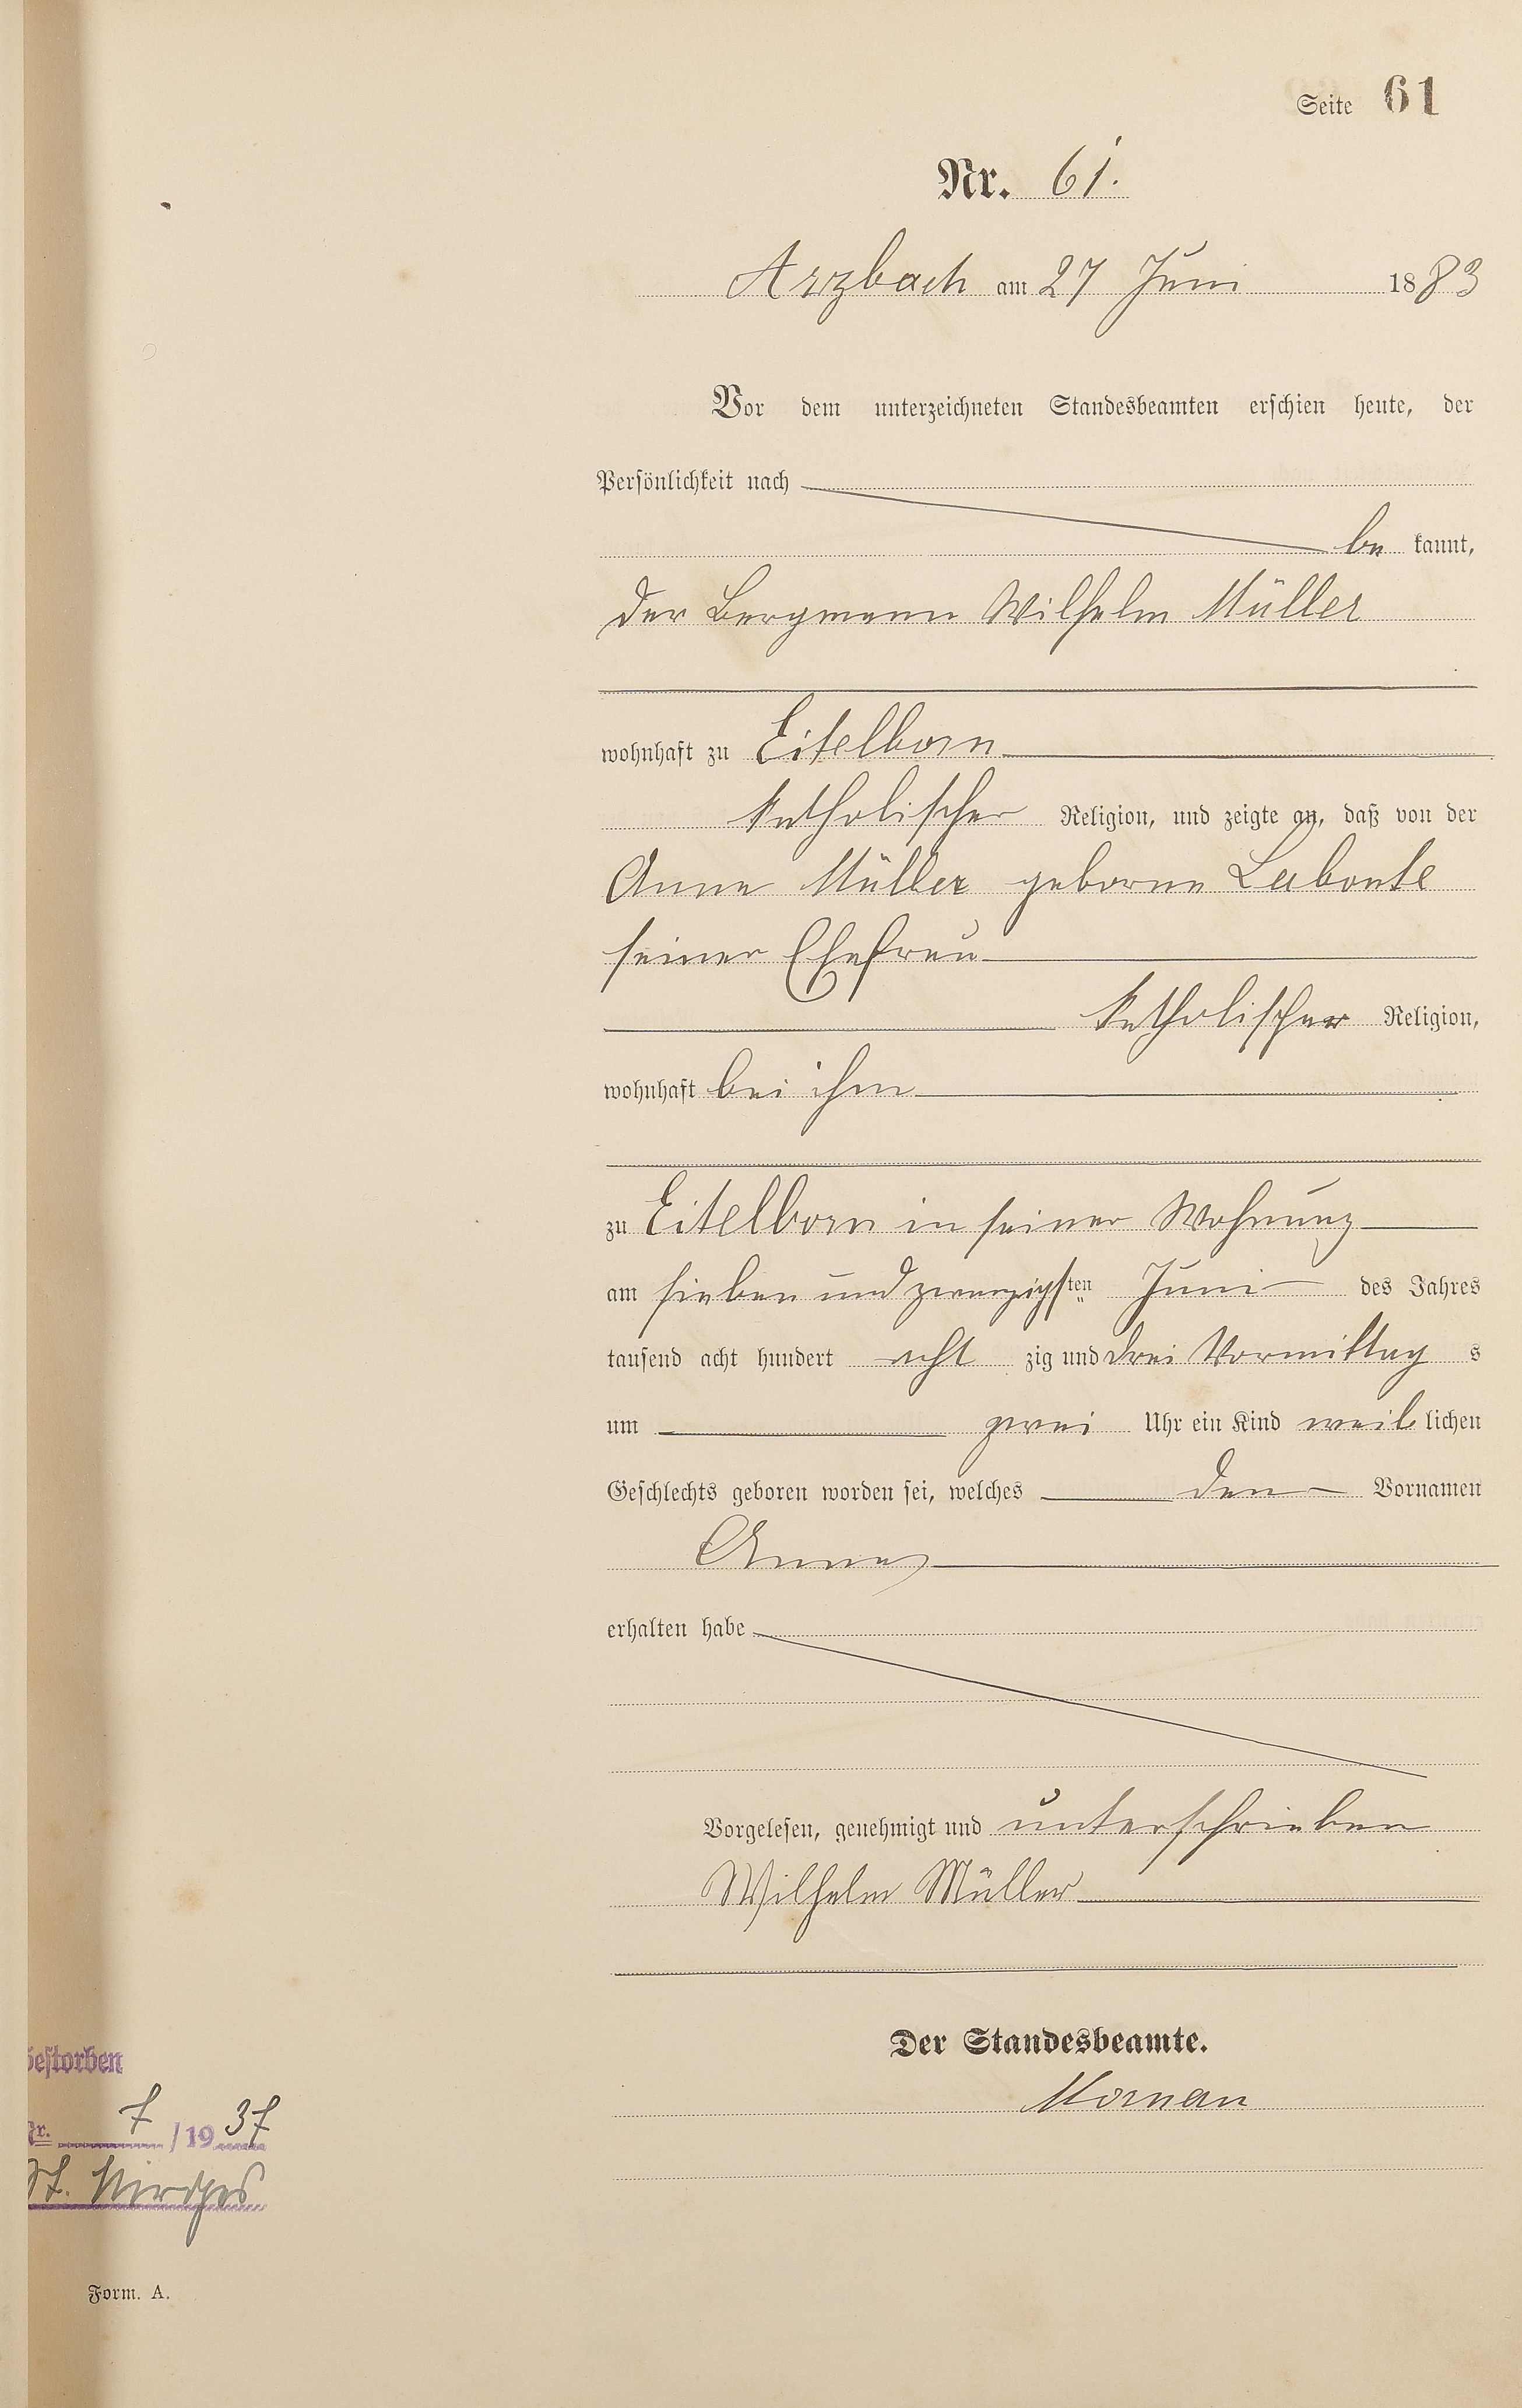 Seite 61
Nr. 61.
Arzbach am 27 Juni 1883
Vor dem unterzeichneten Standesbeamten erschien heute, der
Persönlichkeit nach
be kannt,
der Bergmann Wilhelm Müller
wohnhaft zu Eitelborn
katholischer Religion, und zeigte an, daß von der
Anna Müller geborne Labonte
seiner Ehefrau
katholischer Religion,
wohnhaft bei ihm
zu Eitelborn in seiner Wohnung
am sieben und zwanzigsten Juni des Jahres
tausend acht hundert acht zig und drei Vormittag s
um zwei Uhr ein Kind weib lichen
Geschlechts geboren worden sei, welches den Vornamen
Anna
erhalten habe
Vorgelesen, genehmigt und unterschrieben
Wilhelm Müller
Der Standesbeamte.
Gestorben
Nr. 7 /1937
St.
Form. A.